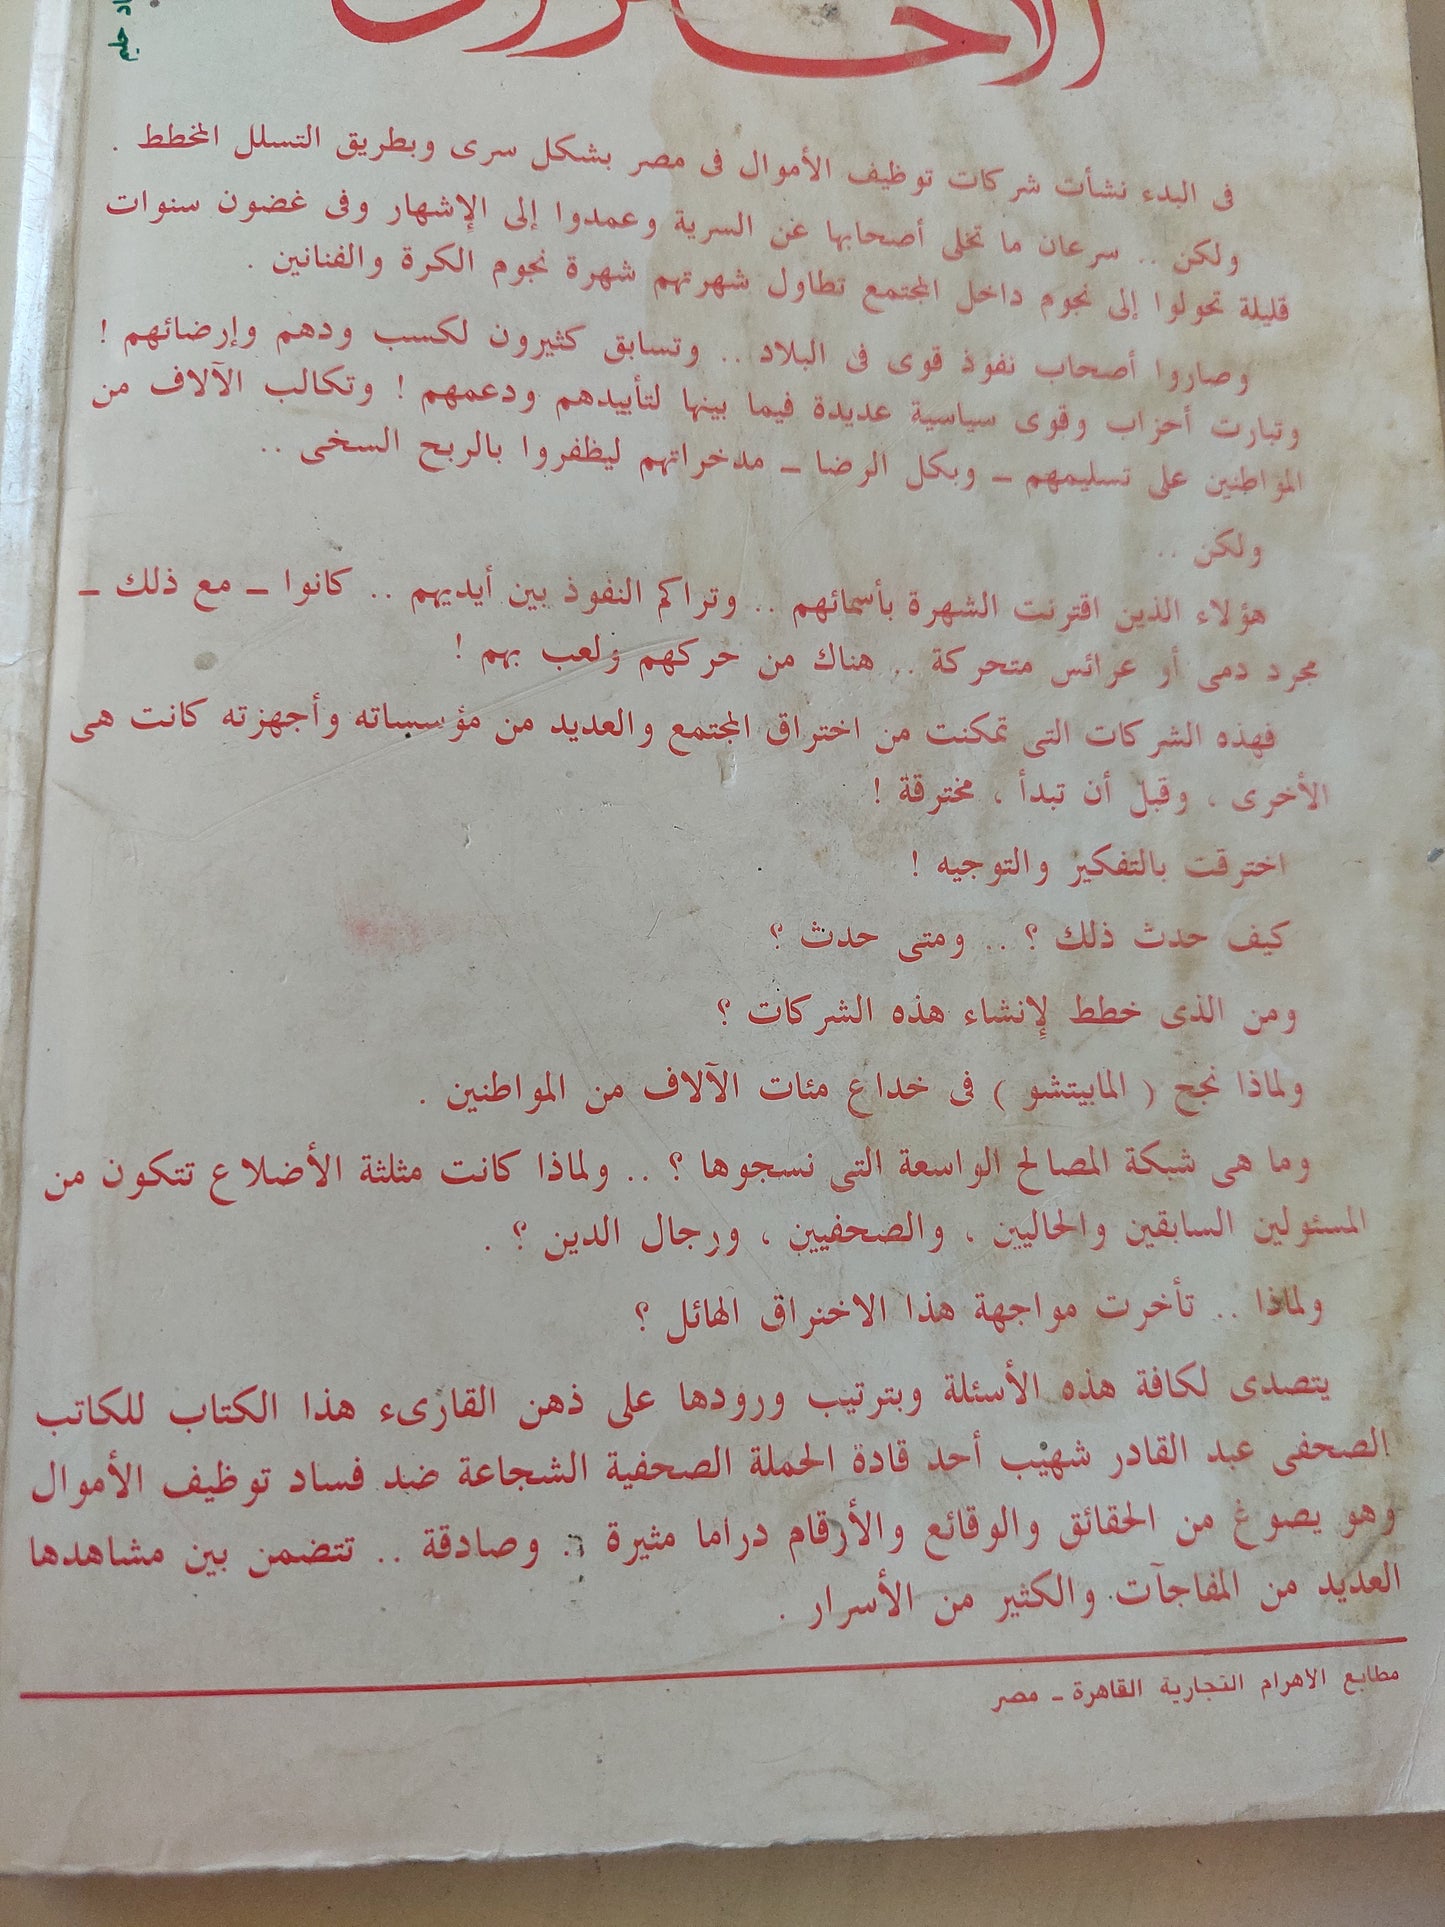 فى البدء نشأت شركات توظيف الأموال فى مصر بشكل سرى وبطريق التسلل المخطط .
ولكن .. سرعان ما تخلى أصحابها عن السرية وعمدوا إلى الإشهار وفى غضون سنوات
قليلة تحولوا إلى نجوم داخل المجتمع تطاول شهرتهم شهرة نجوم الكرة والفنانين .
وصاروا أصحاب نفوذ قوى فى البلاد .. وتسابق كثيرون لكسب ودهم وإرضائهم !
وتبارت أحزاب وقوى سياسية عديدة فيما بينها لتأييدهم ودعمهم ! وتكالب الآلاف من
المواطنين على تسليمهم ــ وبكل الرضا ــ مدخراتهم ليظفروا بالربح السخى ..
ولكن ..
هؤلاء الذين اقترنت الشهرة بأسمائهم .. وتراكم النفوذ بين أيديهم .. كانوا ــ مع ذلك ــ
مجرد دمى أو عرائس متحركة .. هناك من حركهم ولعب بهم !
فهذه الشركات التى تمكنت من اختراق المجتمع والعديد من مؤسساته وأجهزته كانت هى
الأخرى ، وقبل أن تبدأ ، مخترقة !
اخترقت بالتفكير والتوجيه !
كيف حدث ذلك ؟ .. ومتى حدث ؟
ومن الذى خطط لإنشاء هذه الشركات ؟
ولماذا نجح ( المابيتشو ) فى خداع مئات الآلاف من المواطنين .
وما هى شبكة المصالح الواسعة التى نسجوها ؟ .. ولماذا كانت مثلثة الأضلاع تتكون من
المسئولين السابقين والحاليين ، والصحفيين ، ورجال الدين ؟ .
ولماذا .. تأخرت مواجهة هذا الاختراق الهائل ؟
يتصدى لكافة هذه الأسئلة وبترتيب ورودها على ذهن القارىء هذا الكتاب للكاتب
الصحفى عبد القادر شهيب أحد قادة الحملة الصحفية الشجاعة ضد فساد توظيف الأموال
وهو يصوغ من الحقائق والوقائع والأرقام دراما مثيرة .. وصادقة .. تتضمن بين مشاهدها
العديد من المفاجآت والكثير من الأسرار .
مطابع الاهرام التجارية القاهرة ــ مصر